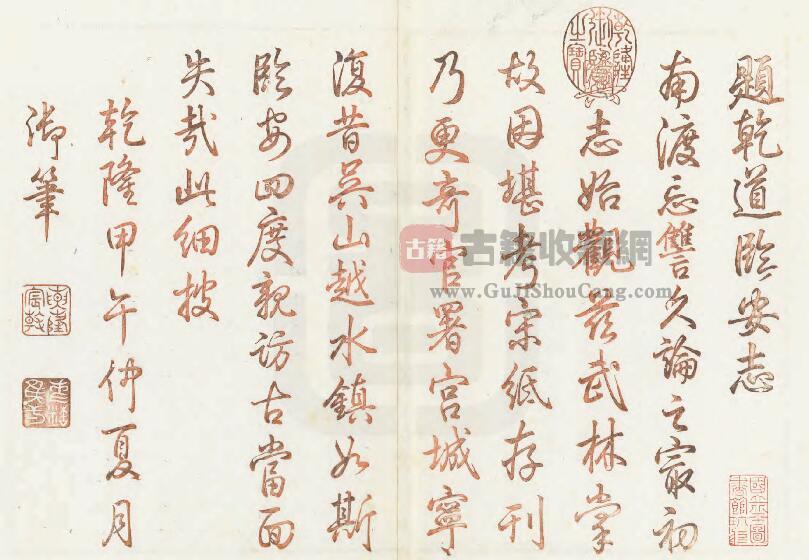 題乾道臨安志
南渡忘讐久論之㝡初
志始觀茲武林掌
故因堪考宋紙存刊
乃更奇官署宮城寧
復昔吳山越水鎮如斯
臨安四度親訪古當面
失哉此細披
乾隆甲午仲夏月
御筆
乾隆御覽之寶
乾隆宸翰
古籍
古籍收藏網
www.GuJiShouCang.com